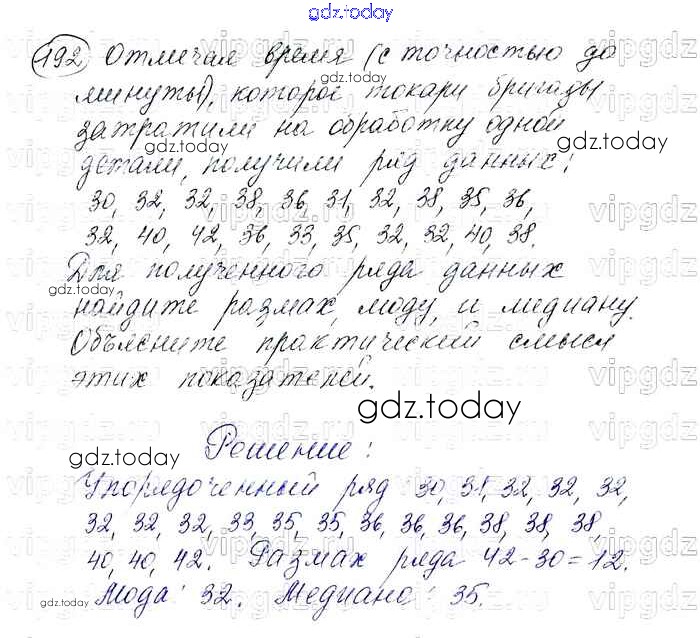 gdz.today
192 Отмечая время (с точностью до
gdz.today
минуты), которое токари бригады
затратили на обработку одной
gdz.today
детали, получили ряд данных:
30, 32, 32, 38, 36, 31, 32, 38, 35, 36,
gdz.today
32, 40, 42, 36, 33, 35, 32, 32, 40, 38.
Для полученного ряда данных
gdz.today
найдите размах, моду, и медиану.
Объясните практический смысл
этих показателей.
gdz.today
Решение:
gdz.today
Упорядоченный ряд 30, 31, 32, 32, 32,
32, 32, 32, 33, 35, 35, 36, 36, 36, 38, 38, 38,
40, 40, 42. Размах ряда 42-30=12.
gdz.today
Мода: 32. Медиана: 35.
gdz.today